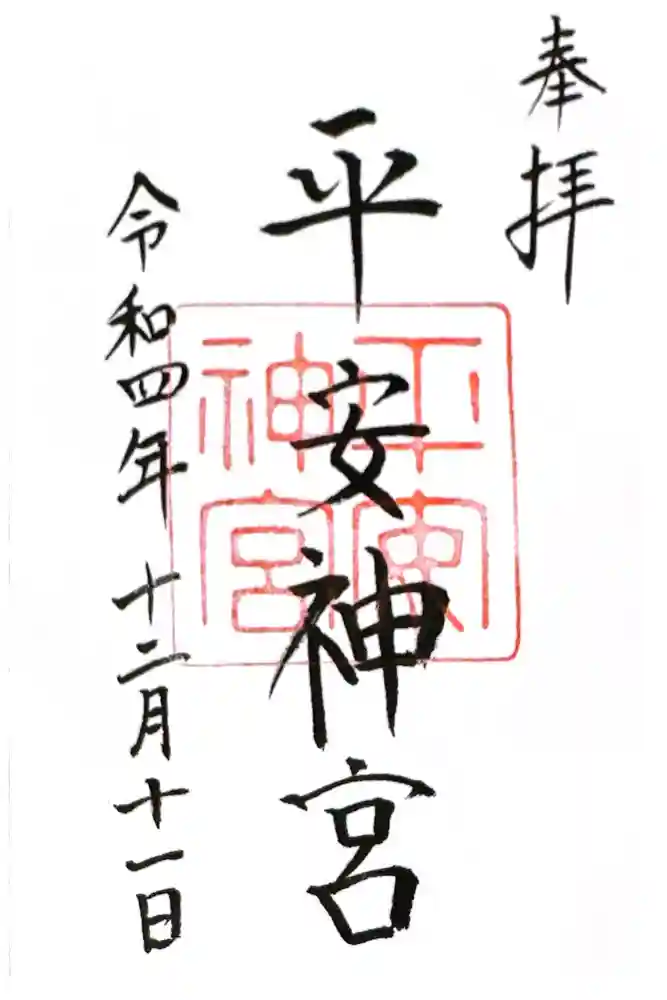 奉拝
平安神宮
平安神宮
令和四年十二月十一日